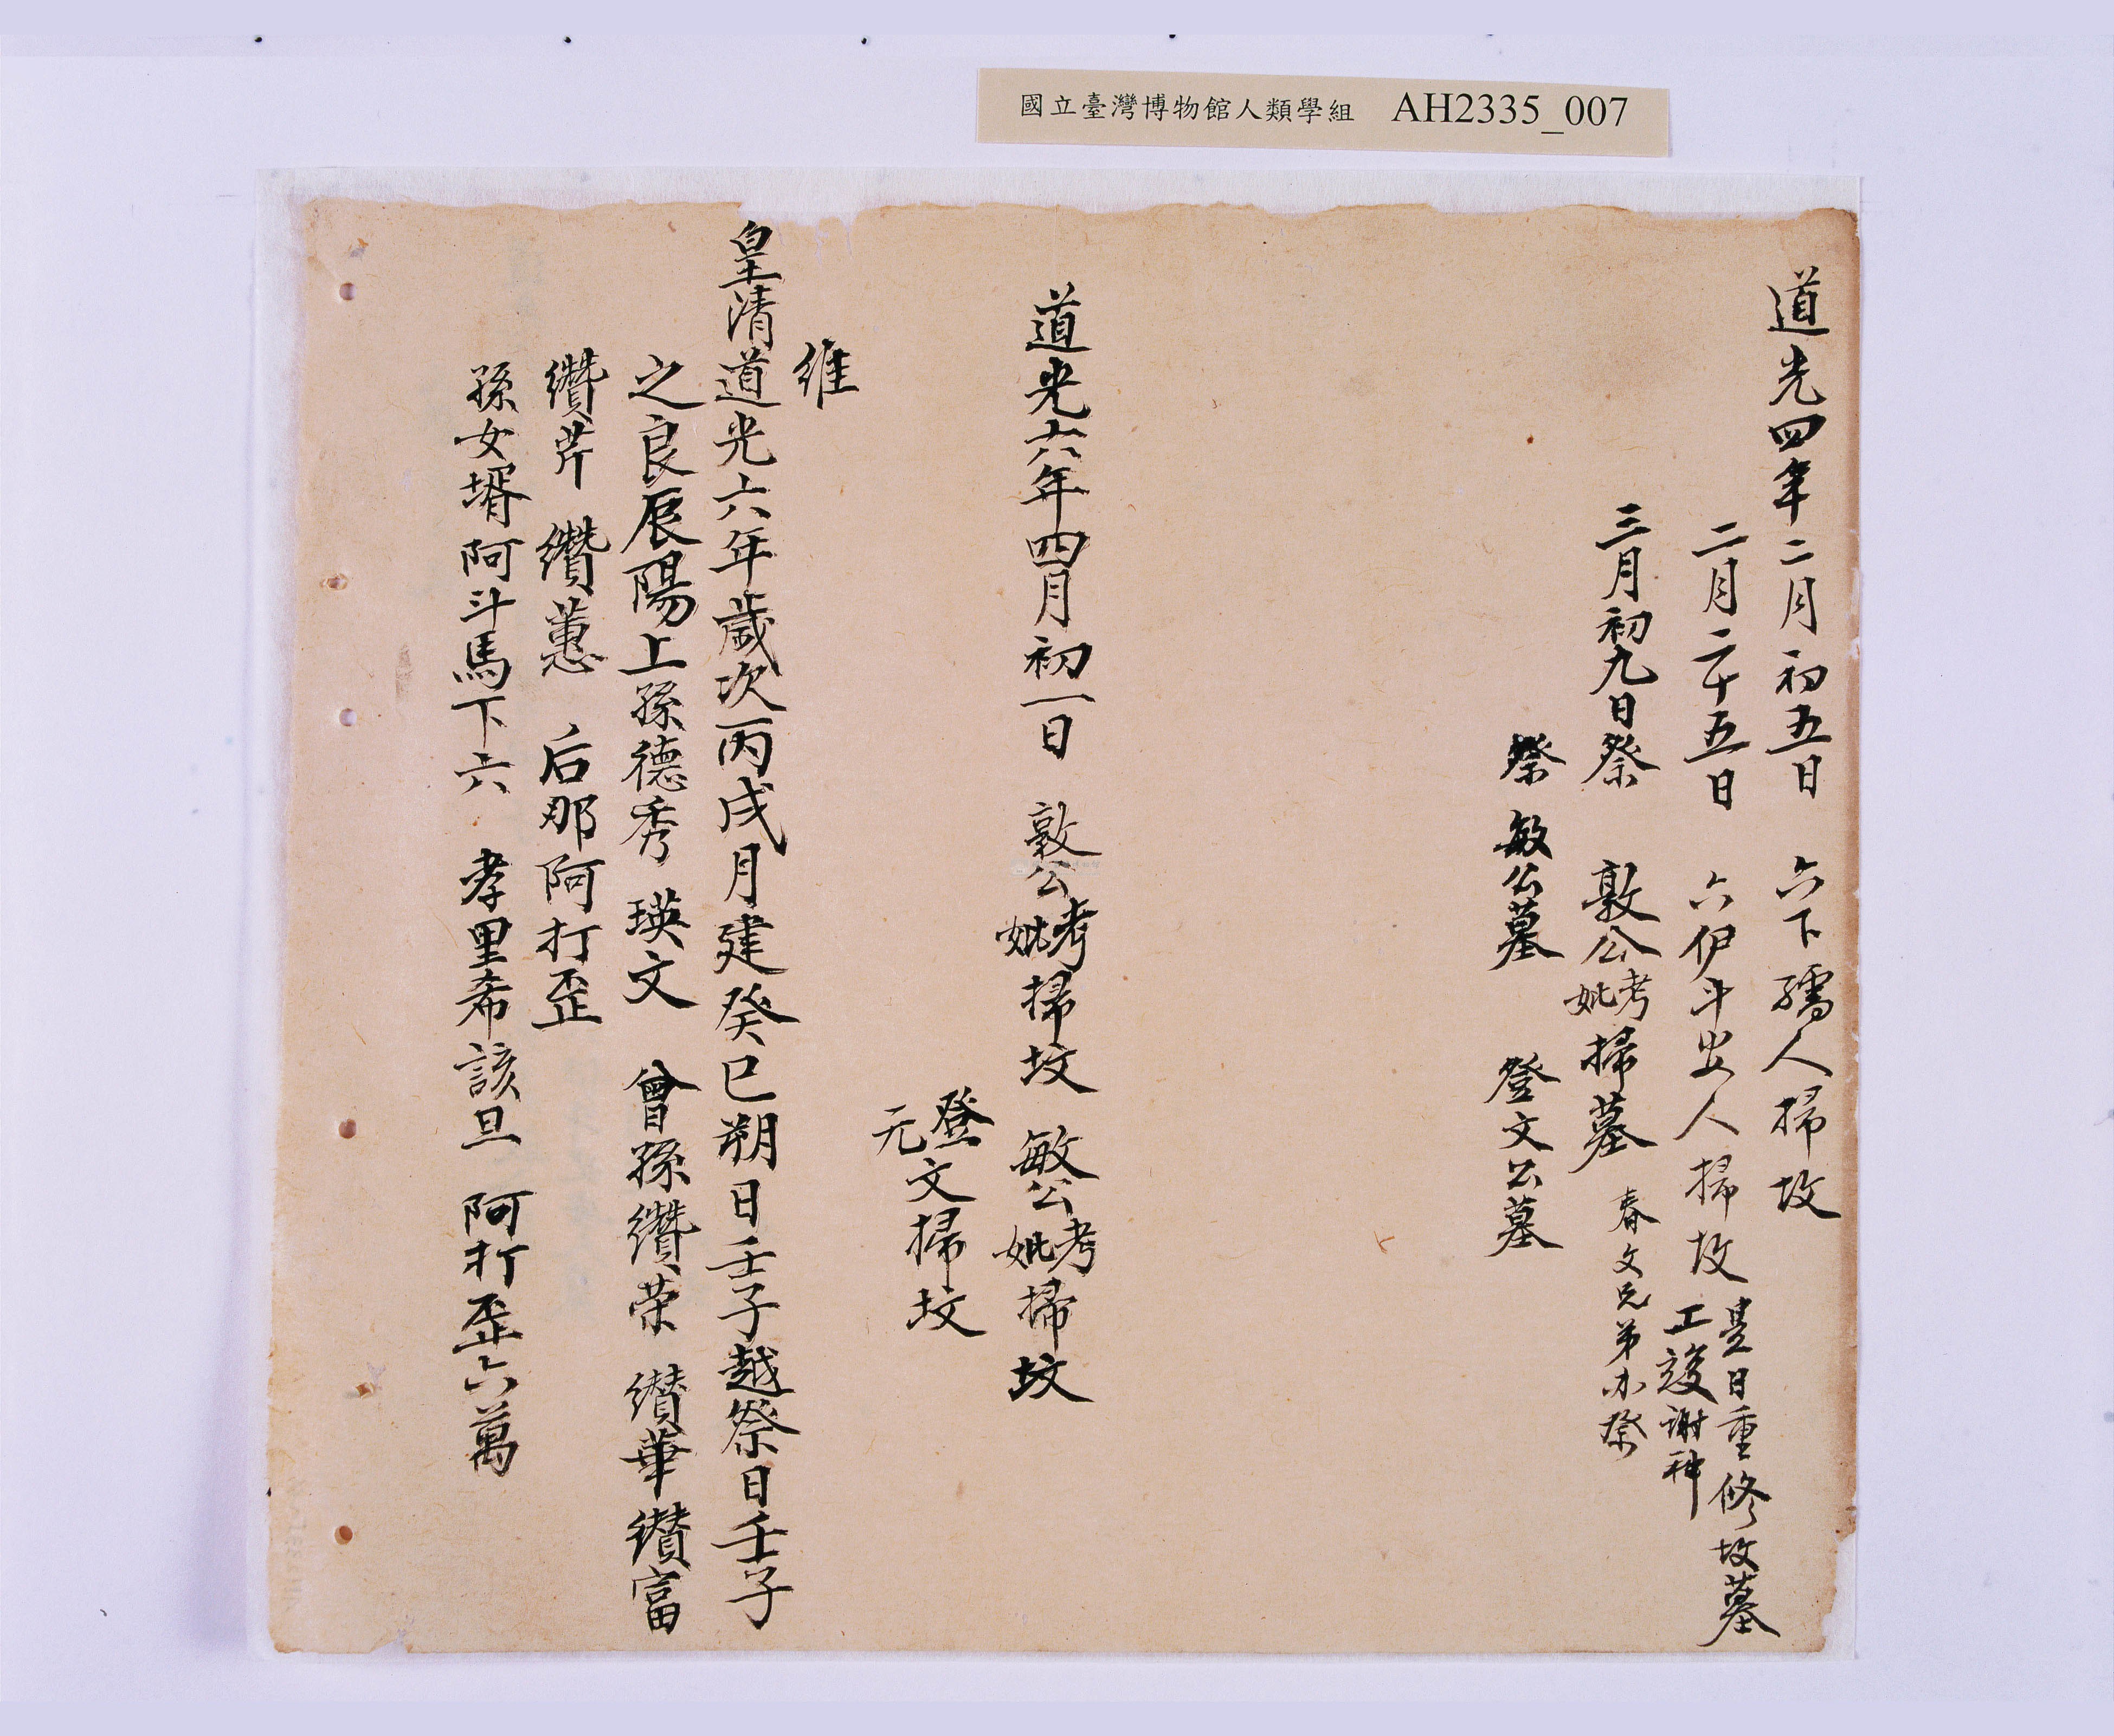 國立臺灣博物館人類學組 AH2335_007
道光四年二月初五日 六下孺人掃坟
二月二十五日 六伊斗出人掃坟 是日重修坟墓
工竣謝神
三月初九日祭 敦公考妣掃墓 春文兄弟亦祭
祭 敏公墓 登文公墓
道光六年四月初一日 敦公考妣掃坟 敏公考妣掃坟
登元文掃坟
維
皇清道光六年歲次丙戌月建癸巳朔日壬子越祭日壬子
之良辰陽上孫德秀 瑛文 曾孫纘荣 纘華 纘富
纘芹 纘蕙 后那阿打歪
孫女壻阿斗馬下六 孝里希該旦 阿打歪六萬